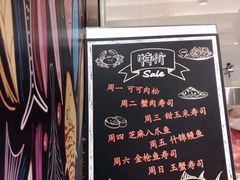 特价
Sale
周一 可可肉松
周二 蟹肉寿司
周三 甜玉米寿司
周四 芝麻八爪鱼
周五 什锦鳗鱼
周六 金枪鱼寿司
周日 玉蟹寿司